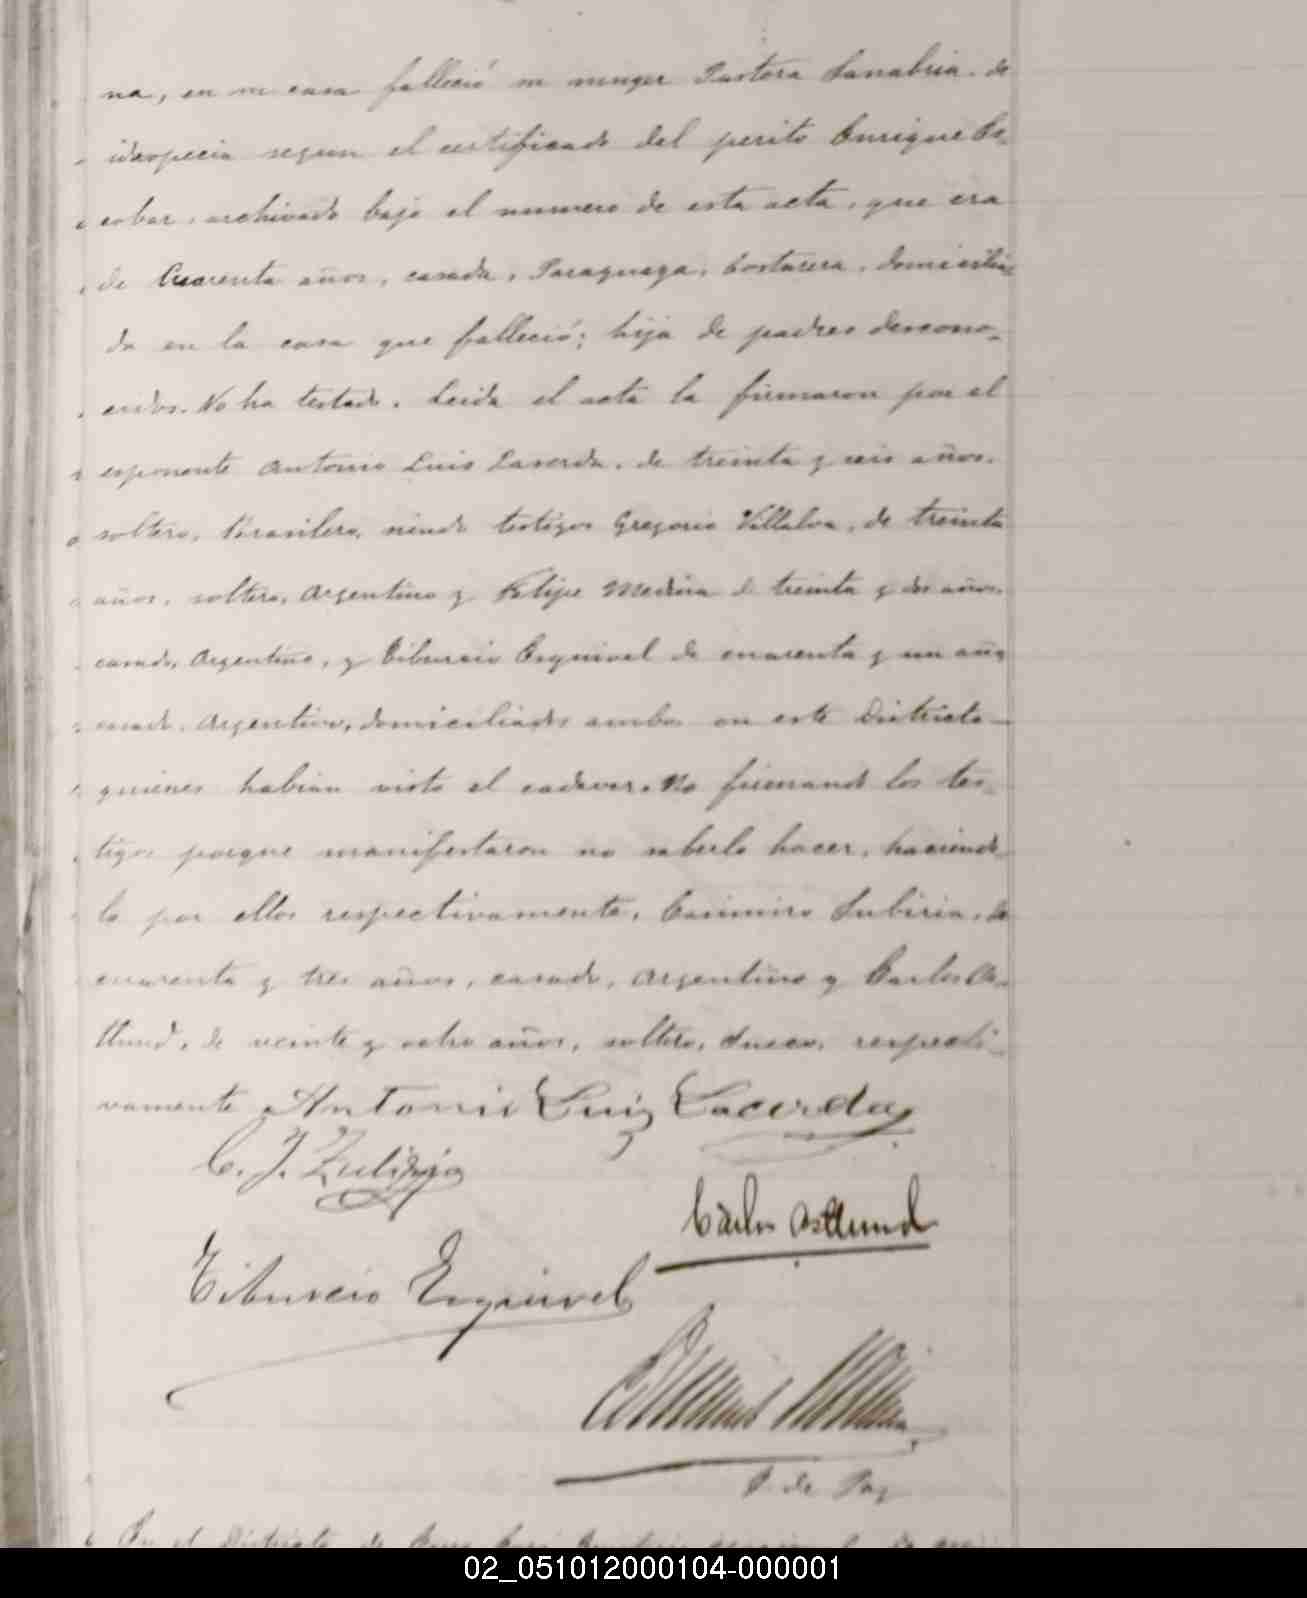 na, en su casa falleció su muger Pastora Sanabria de
idropecia segun el certificado del perito Enrique Es-
cobar, archivado bajo el numero de esta acta, que era
de Cuarenta años, casada, Paraguaya, Costurera, domicilia-
da en la casa que falleció; hija de padres descono-
cidos. No ha testado. Leida el acta la firmaron por el
esponente Antonio Luis Laserda, de treinta y seis años,
soltero, Brasilero, siendo testigos Gregorio Villalva, de treinta
años, soltero, Argentino y Felipe Medina de treinta y dos años,
casado, Argentino, y Tiburcio Esquivel de cuarenta y un año
casado, Argentino, domiciliados ambos en este Districto
quienes habian visto el cadaver. No firmando los tes-
tigos porque manifestaron no saberlo hacer, haciendo-
lo por ellos respectivamente, Casimiro Subiria, de
cuarenta y tres años, casado, Argentino y Carlos As-
tlund, de veinte y ocho años, soltero, Sueco, respecti-
vamente Antonio Luiz Lacerda
C. J.
Carlos Astlund
Tiburcio Esquivel
J. de Paz
En el Districto de
02_051012000104-000001